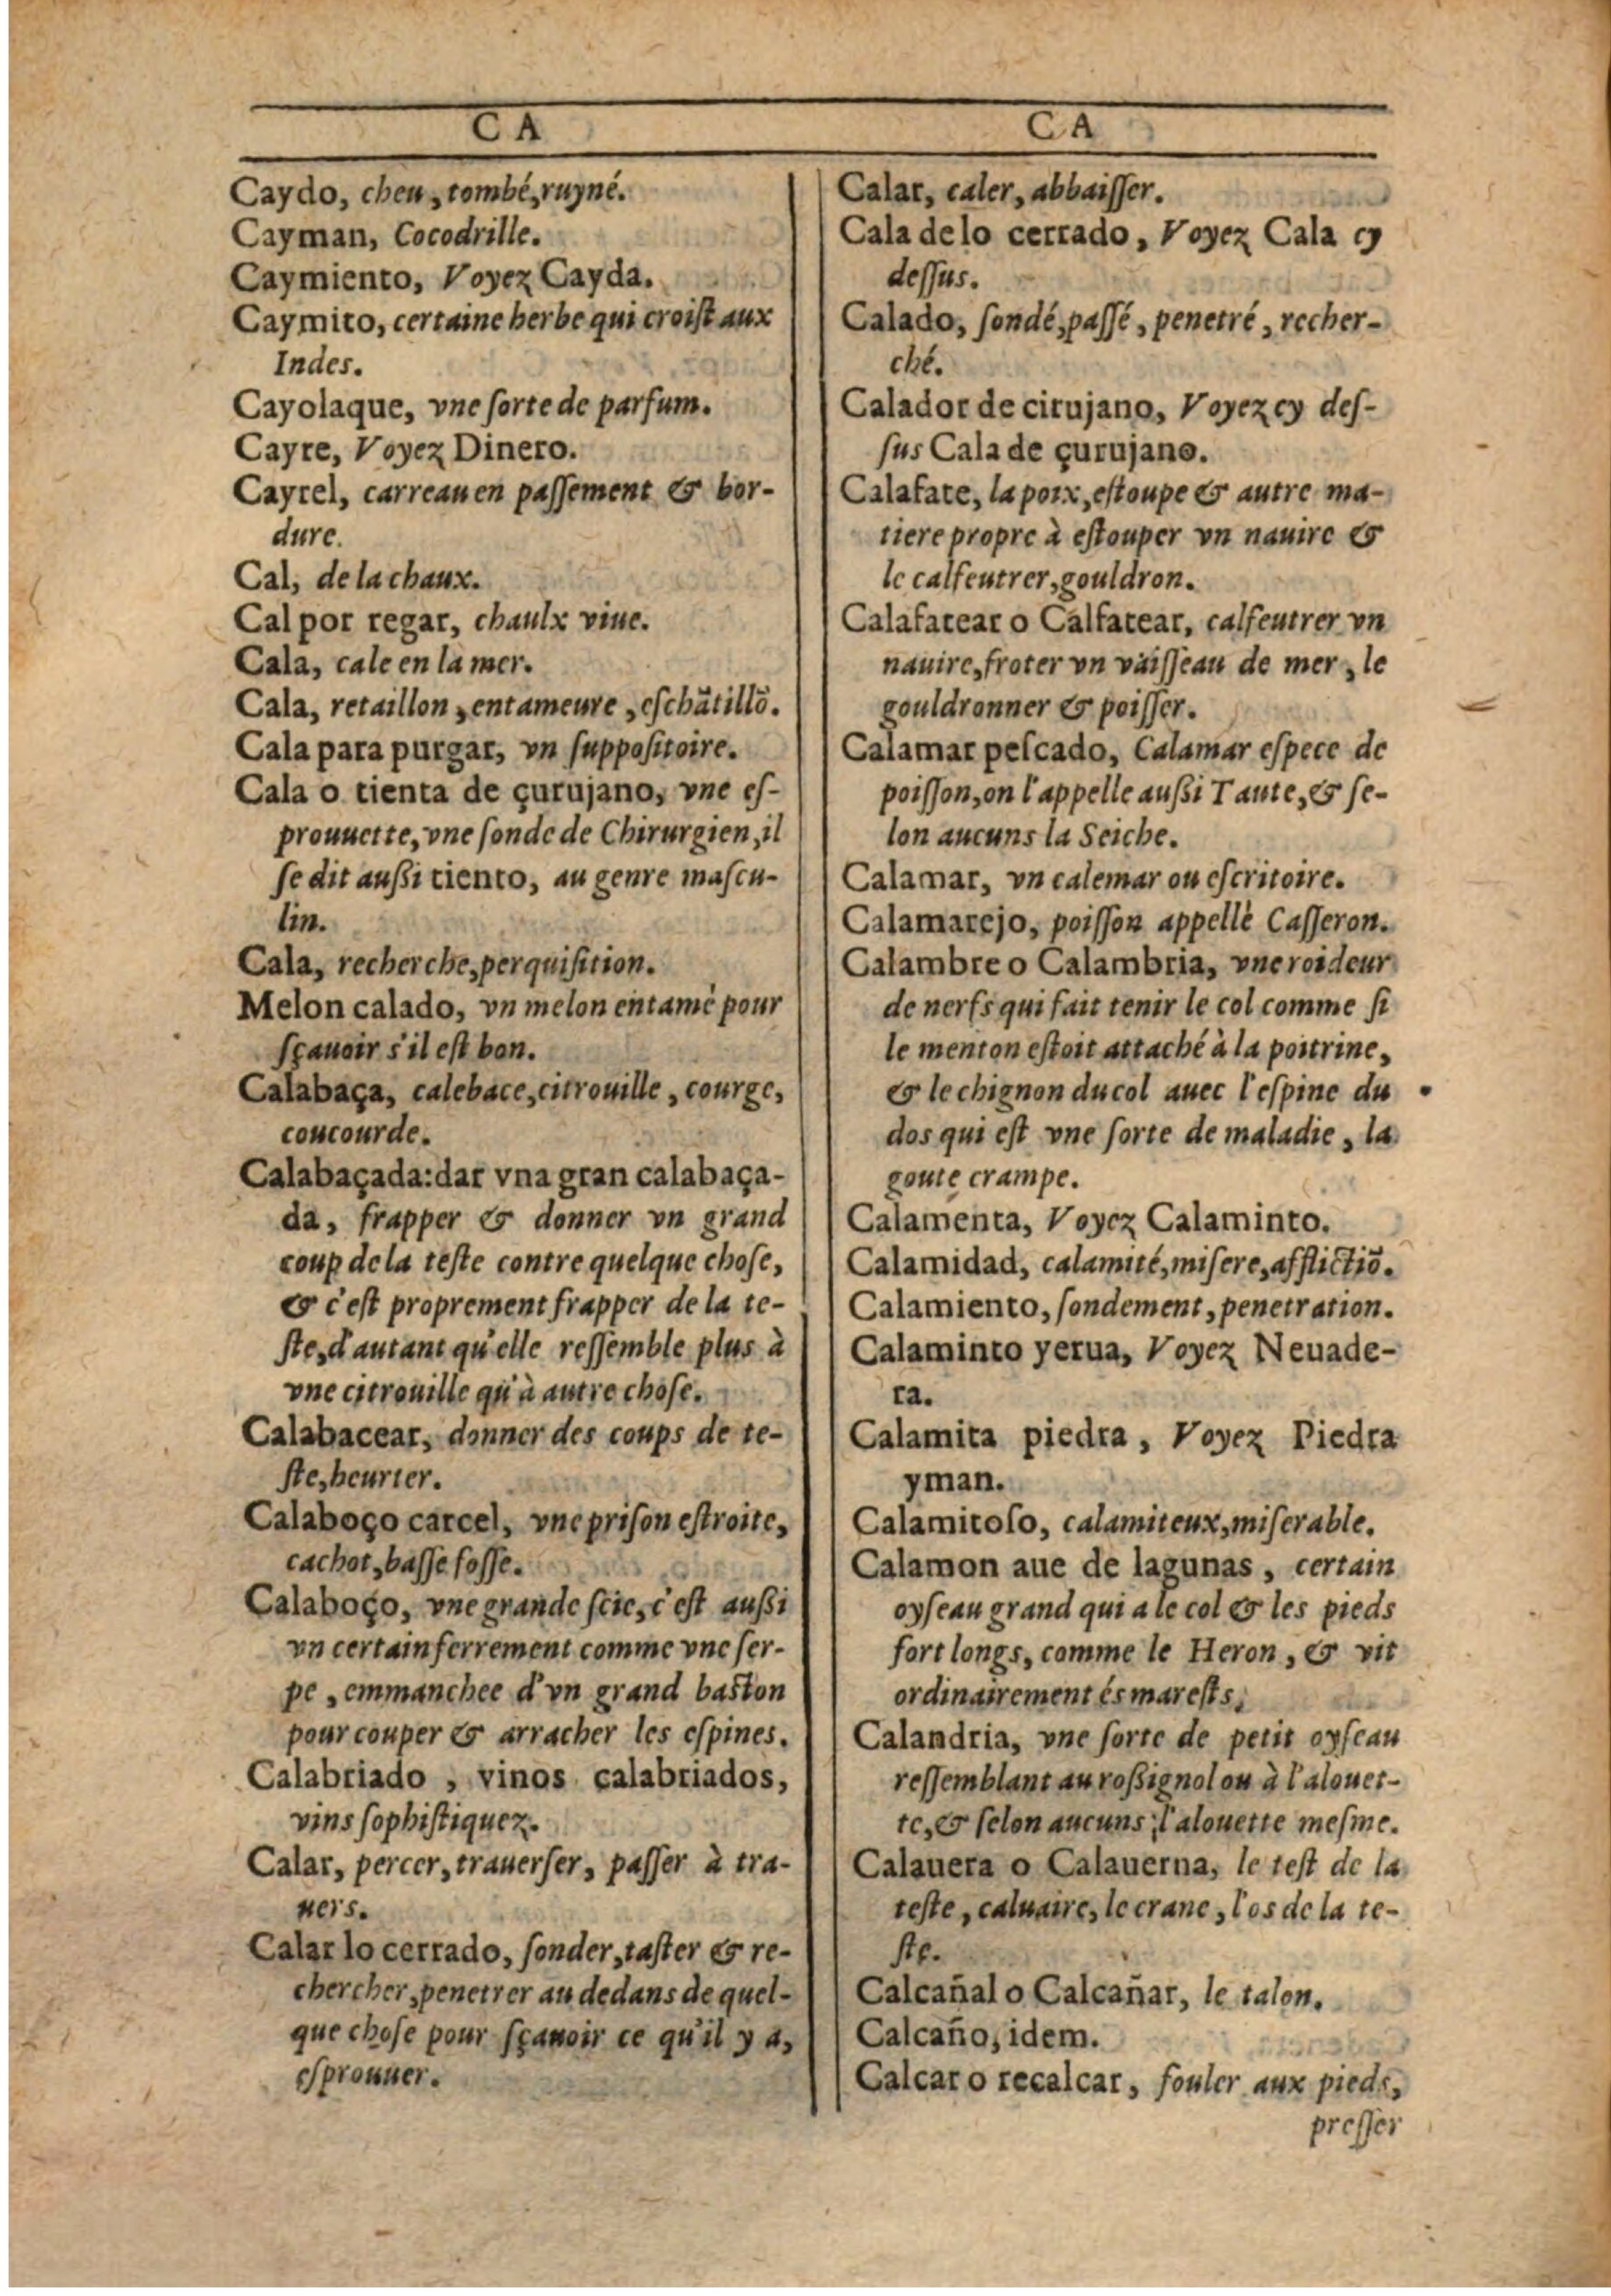 CA
Caydo, cheu, tombé, ruyné.
Cayman, Cocodrille.
Caymiento, Voyez Cayda.
Caymito, certaine herbe qui croist aux
Indes.
Cayolaque, vne ſorte de parfum.
Cayre, Voyez Dinero.
Cayrel, carreau en paſſement & bor-
dure.
Cal, de la chaux.
Cal por regar, chaulx viue.
Cala, cale en la mer.
Cala, retaillon, entameure, eſchãtillõ.
Cala para purgar, vn ſuppoſitoire.
Cala o tienta de çurujano, vne eſ-
prouuette, vne ſonde de Chirurgien, il
ſe dit auſſi tiento, au genre maſcu-
lin.
Cala, recherche, perquiſition.
Melon calado, vn melon entamè pour
ſçauoir s'il eſt bon.
Calabaça, calebace, citrouille, courge,
coucourde.
Calabaçada: dar vna gran calabaça-
da, frapper & donner vn grand
coup de la teſte contre quelque choſe,
& c'eſt proprement frapper de la te-
ſte, d'autant qu'elle reſſemble plus à
vne citrouille qu'à autre choſe.
Calabacear, donner des coups de te-
ſte, heurter.
Calaboço carcel, vne priſon eſtroite,
cachot, baſſe foſſe.
Calaboço, vne grande ſcie, c'eſt auſſi
vn certain ferrement comme vne ſer-
pe, emmanchee d'vn grand baſton
pour couper & arracher les eſpines.
Calabriado, vinos calabriados,
vins ſophiſtiquez.
Calar, percer, trauerſer, paſſer à tra-
uers.
Calar lo cerrado, ſonder, taſter & re-
chercher, penetrer au dedans de quel-
que choſe pour ſçauoir ce qu'il y a,
eſprouuer.
CA
Calar, caler, abbaiſſer.
Cala de lo cerrado, Voyez Cala cy
deſſus.
Calado, ſondé, paſſé, penetré, recher-
ché.
Calador de cirujano, Voyez cy deſ-
ſus Cala de çurujano.
Calafate, la poix, eſtoupe & autre ma-
tiere propre à eſtouper vn nauire &
le calfeutrer, gouldron.
Calafatear o Calfatear, calfeutrer vn
nauire, froter vn vaiſſeau de mer, le
gouldronner & poiſſer.
Calamar peſcado, Calamar eſpece de
poiſſon, on l'appelle auſſi Taute, & ſe-
lon aucuns la Seiche.
Calamar, vn calemar ou eſcritoire.
Calamarejo, poiſſon appellè Caſſeron.
Calambre o Calambria, vne roideur
de nerfs qui fait tenir le col comme ſi
le menton eſtoit attaché à la poitrine,
& le chignon du col auec l'eſpine du
dos qui eſt vne ſorte de maladie, la
goute crampe.
Calamenta, Voyez Calaminto.
Calamidad, calamité, miſere, afflictiõ.
Calamiento, ſondement, penetration.
Calaminto yerua, Voyez Neuade-
ra.
Calamita piedra, Voyez Piedra
yman.
Calamitoſo, calamiteux, miſerable.
Calamon aue de lagunas, certain
oyſeau grand qui a le col & les pieds
fort longs, comme le Heron, & vit
ordinairement és mareſts.
Calandria, vne ſorte de petit oyſeau
reſſemblant au roſſignol ou à l'alouet-
te, & ſelon aucuns, l'alouette meſme.
Calauera o Calauerna, le teſt de la
teſte, caluaire, le crane, l'os de la te-
ſte.
Calcañal o Calcañar, le talon.
Calcaño, idem.
Calcar o recalcar, fouler aux pieds,
preſſer